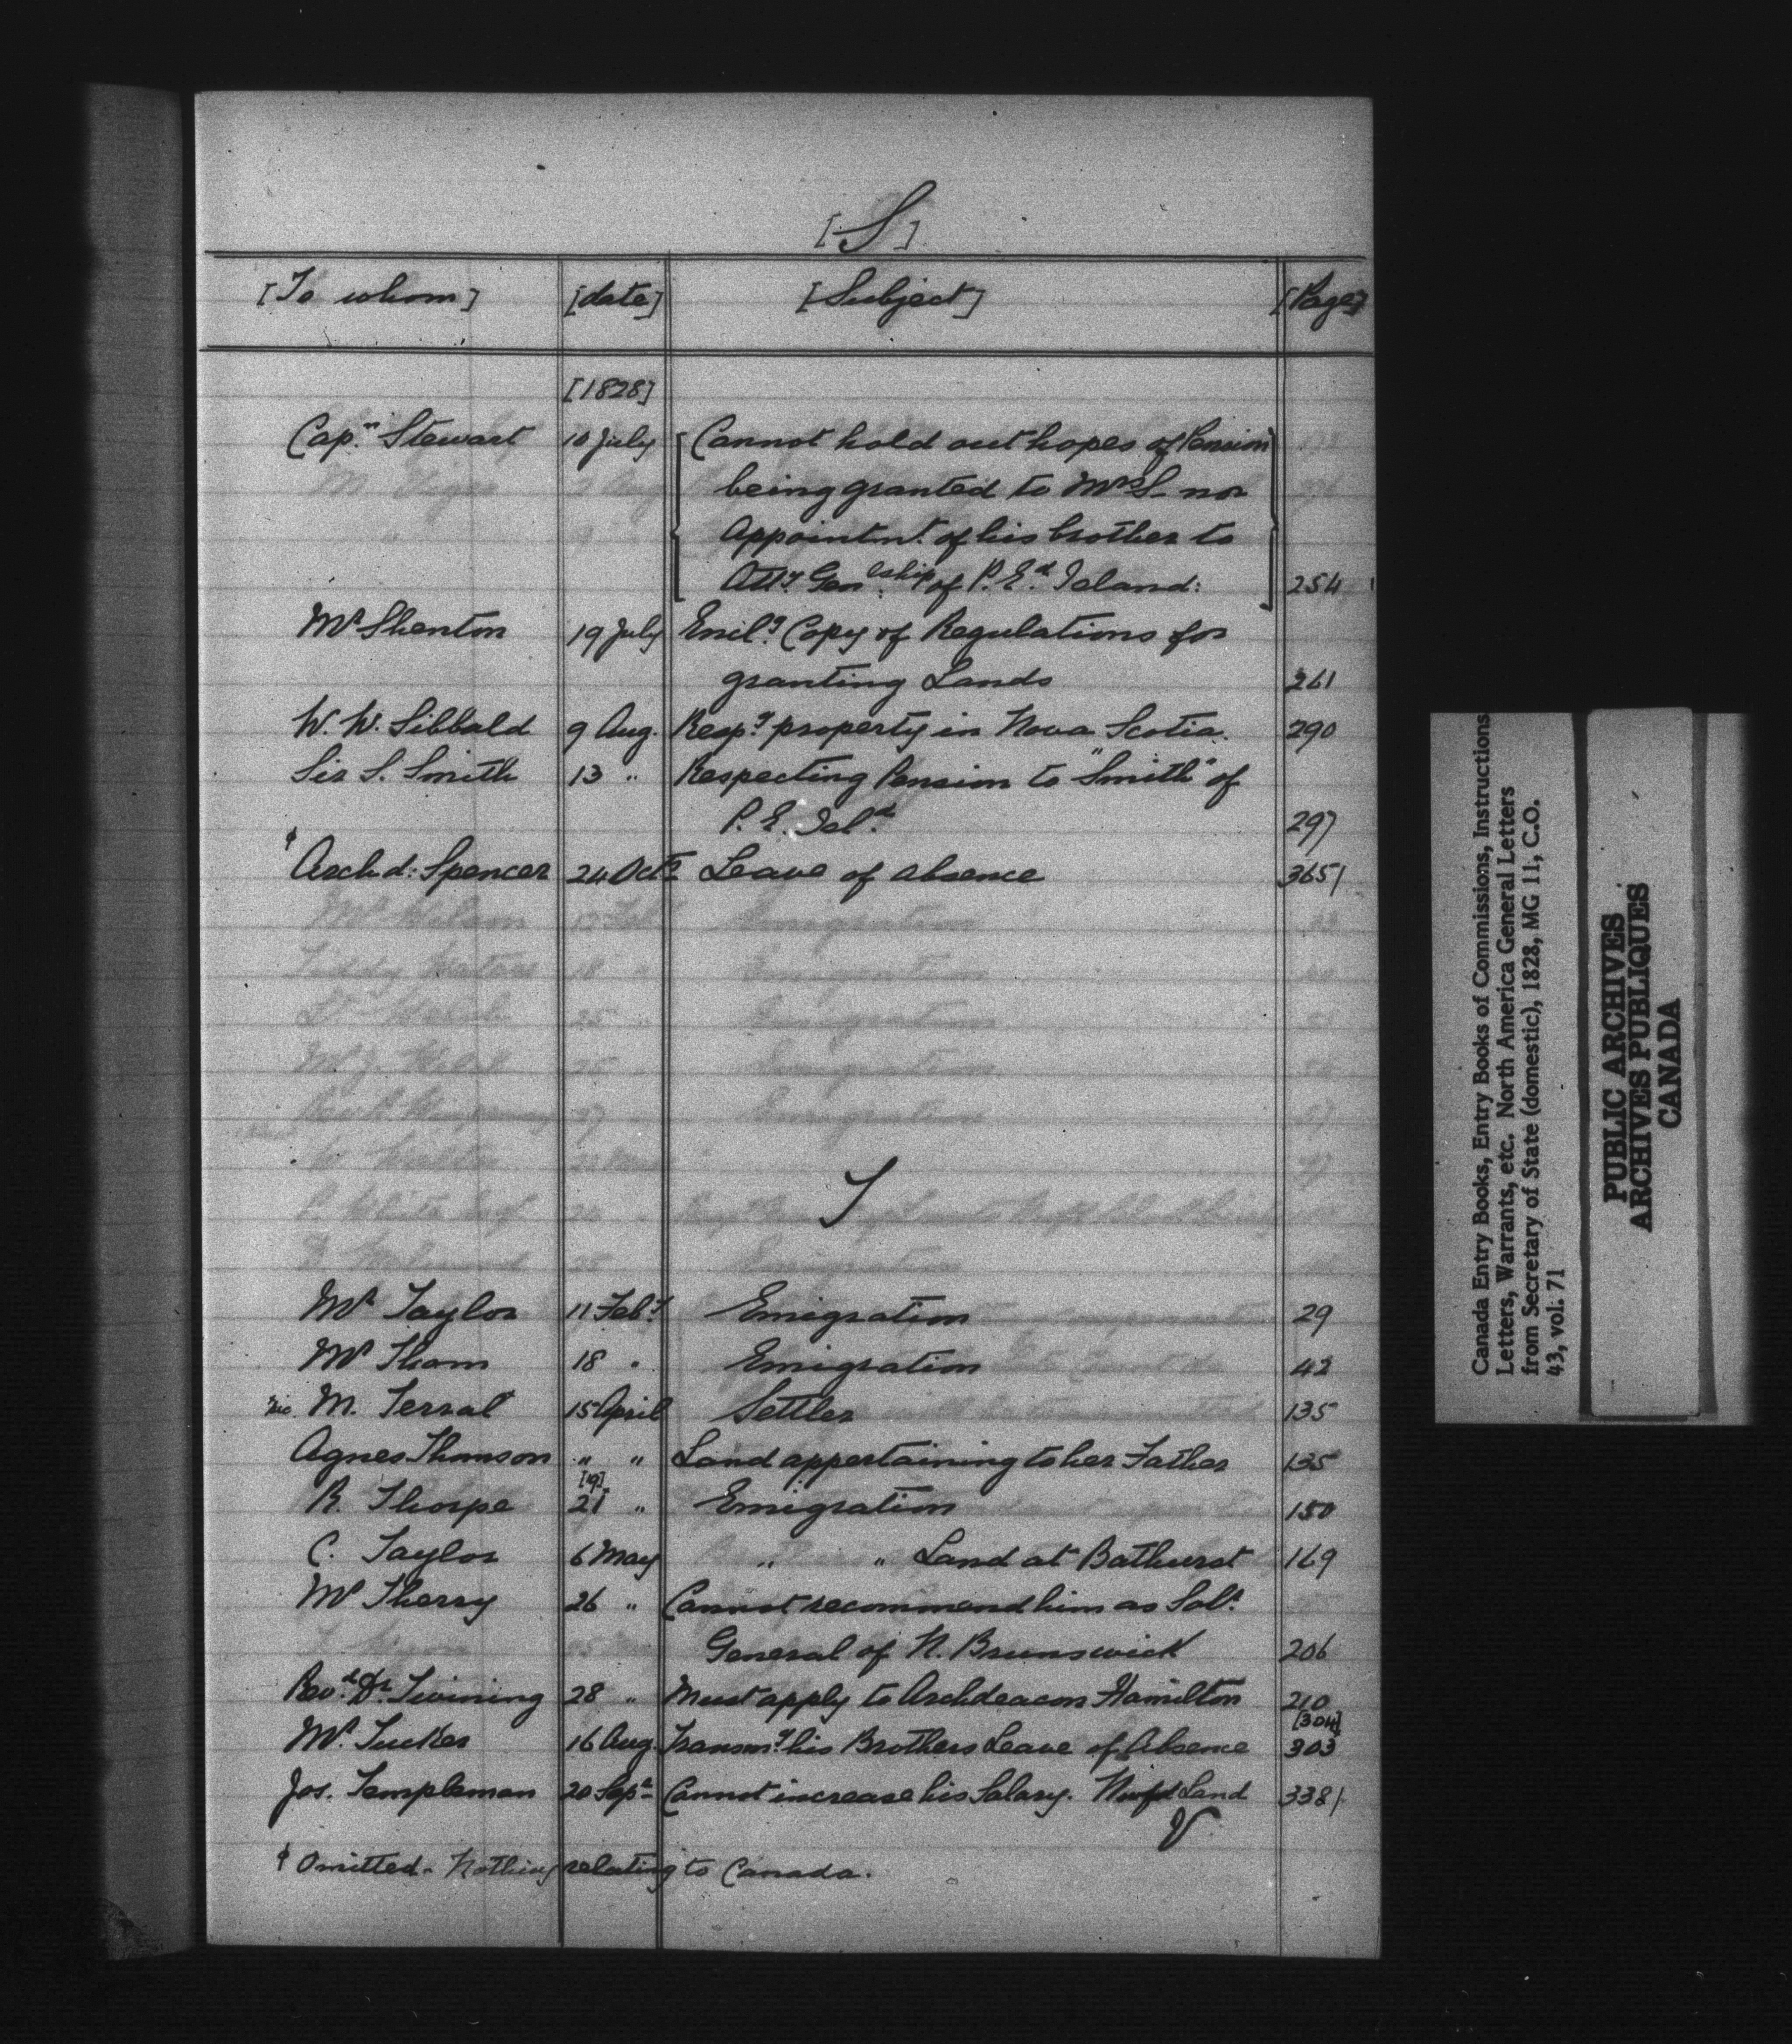 [S]
[To whom] [date] [Subject] [Page]
[1828]
Cap.n Stewart 10 July Cannot hold out hopes of Pension
being granted to Mrs S- nor
Appointmt. of his brother to
Atty Gen:lship of P. Ed. Island: 254
Mr Shenton 19 July Encl.g Copy of Regulations for
granting Lands 261
W. W. Sibbald 9 Aug. Resp.g property in Nova Scotia. 290
Sir S. Smith 13 " Respecting Pension to "Smith" of
P. E. Isl.d 297
ϕ Archd: Spencer 24 Octr Leave of absence 365/
T
Mr Taylor 11 Feb.y Emigration 29
Mr Thom 18 " Emigration 42
sic M. Terral 15 April Settler 135
Agnes Thomson " " Land appertaining to her Father 135
R. Thorpe [19] 21 " Emigration 150
C. Taylor 6 May " " Land at Bathurst 169
Mr Therry 26 " Cannot recommend him as Sol.r
General of N. Brunswick 206
Rev.d Dr. Twining 28 " Must apply to Archdeacon Hamilton 210
Mr. Tucker 16 Aug. Transm.g his Brothers Leave of Absence [304] 303
Jos. Templeman 20 Sepr Cannot increase his Salary. Newfd Land 338/
V
ϕ Omitted - Nothing relating to Canada.
Canada Entry Books, Entry Books of Commissions, Instructions
Letters, Warrants, etc. North America General Letters
from Secretary of State (domestic), 1828, MG 11, C.O.
43, vol. 71
PUBLIC ARCHIVES
ARCHIVES PUBLIQUES
CANADA